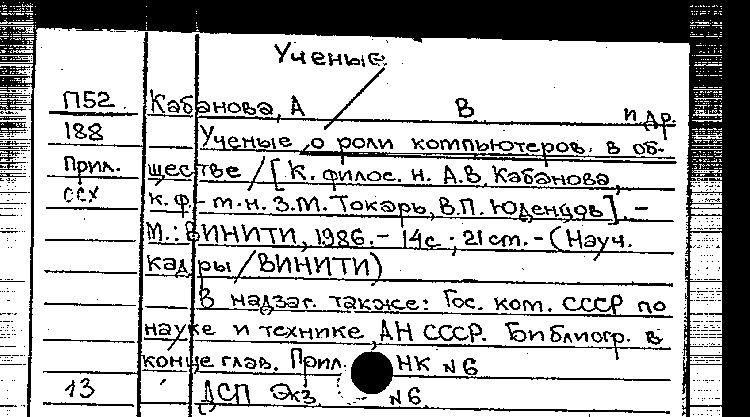 Ученые
П52 Кабанова, А В и др.
188 Ученые о роли компьютеров в об-
Прил. ществе / [К. филос. н. А.В. Кабанова,
ссх к.ф.-т.н. З.М. Токарь, В.П. Юденцов]. -
М.: ВИНИТИ, 1986. - 14с ; 21см. - (Науч.
кадры / ВИНИТИ)
В надзаг. также: Гос. ком. СССР по
науке и технике, АН СССР. Библиогр. в
конце глав. Прил. НК №6
13 ДСП Экз. №6